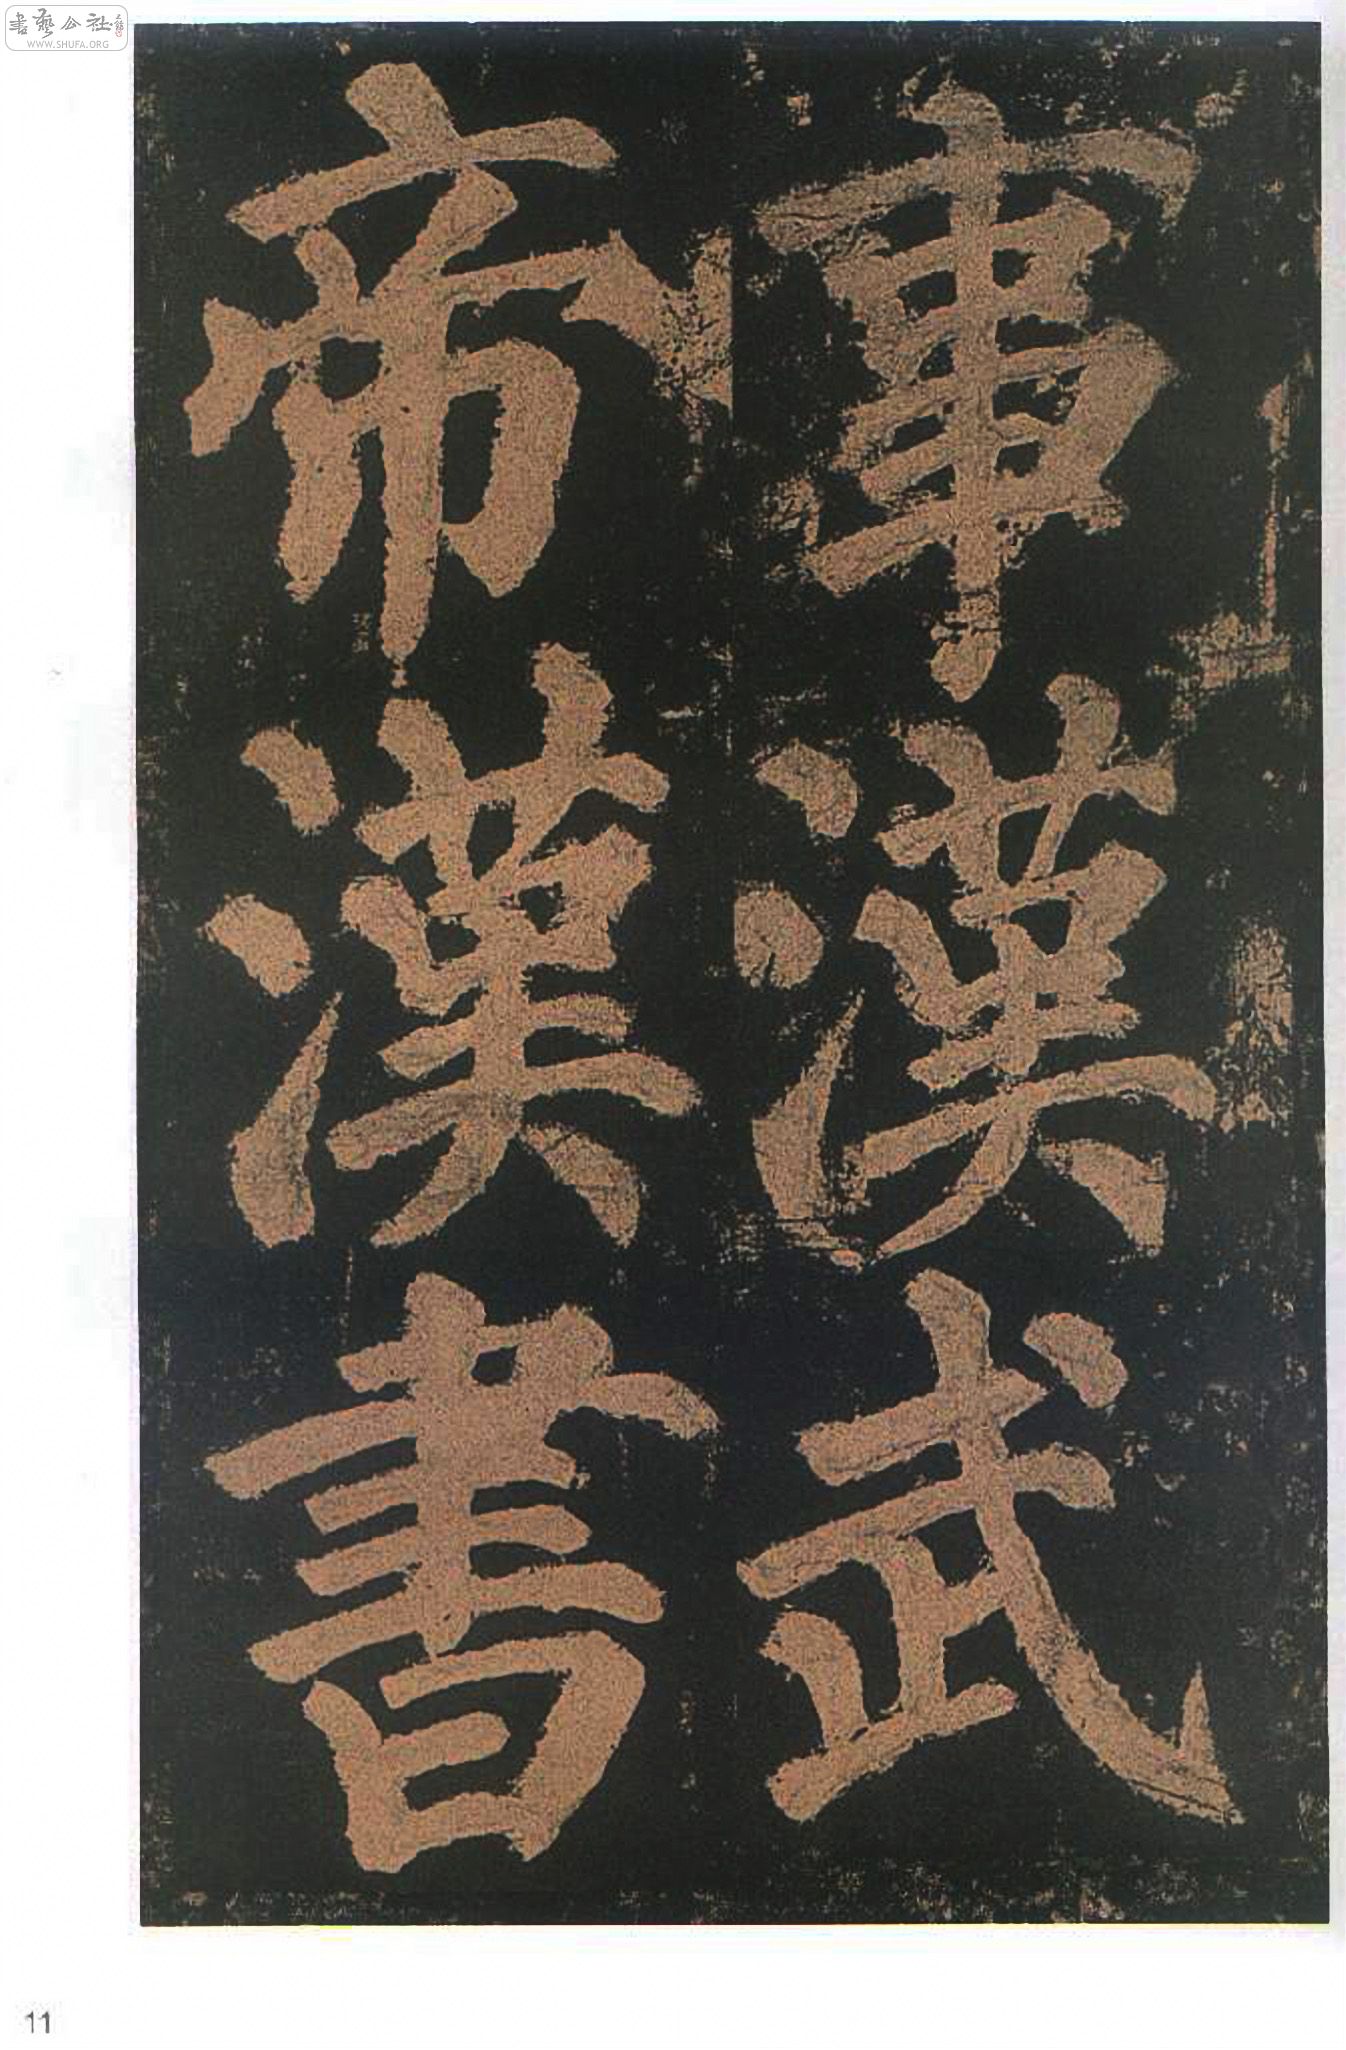 書藝公社
WWW.SHUFA.ORG
事漢武
帝漢書
11